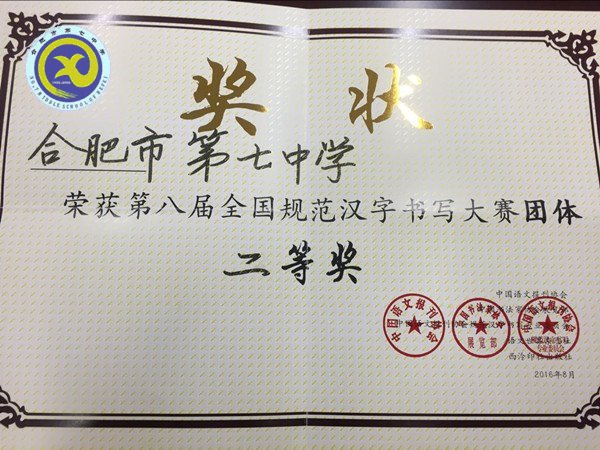 合肥市第七中学
NO.7 MIDDLE SCHOOL OF HEFEI
奖状
合肥市第七中学
荣获第八届全国规范汉字书写大赛团体
二等奖
中国语文报刊协会
西泠印社出版社
2016年8月
中国语文报刊协会
展览部
中国语文报刊协会
专业委员会